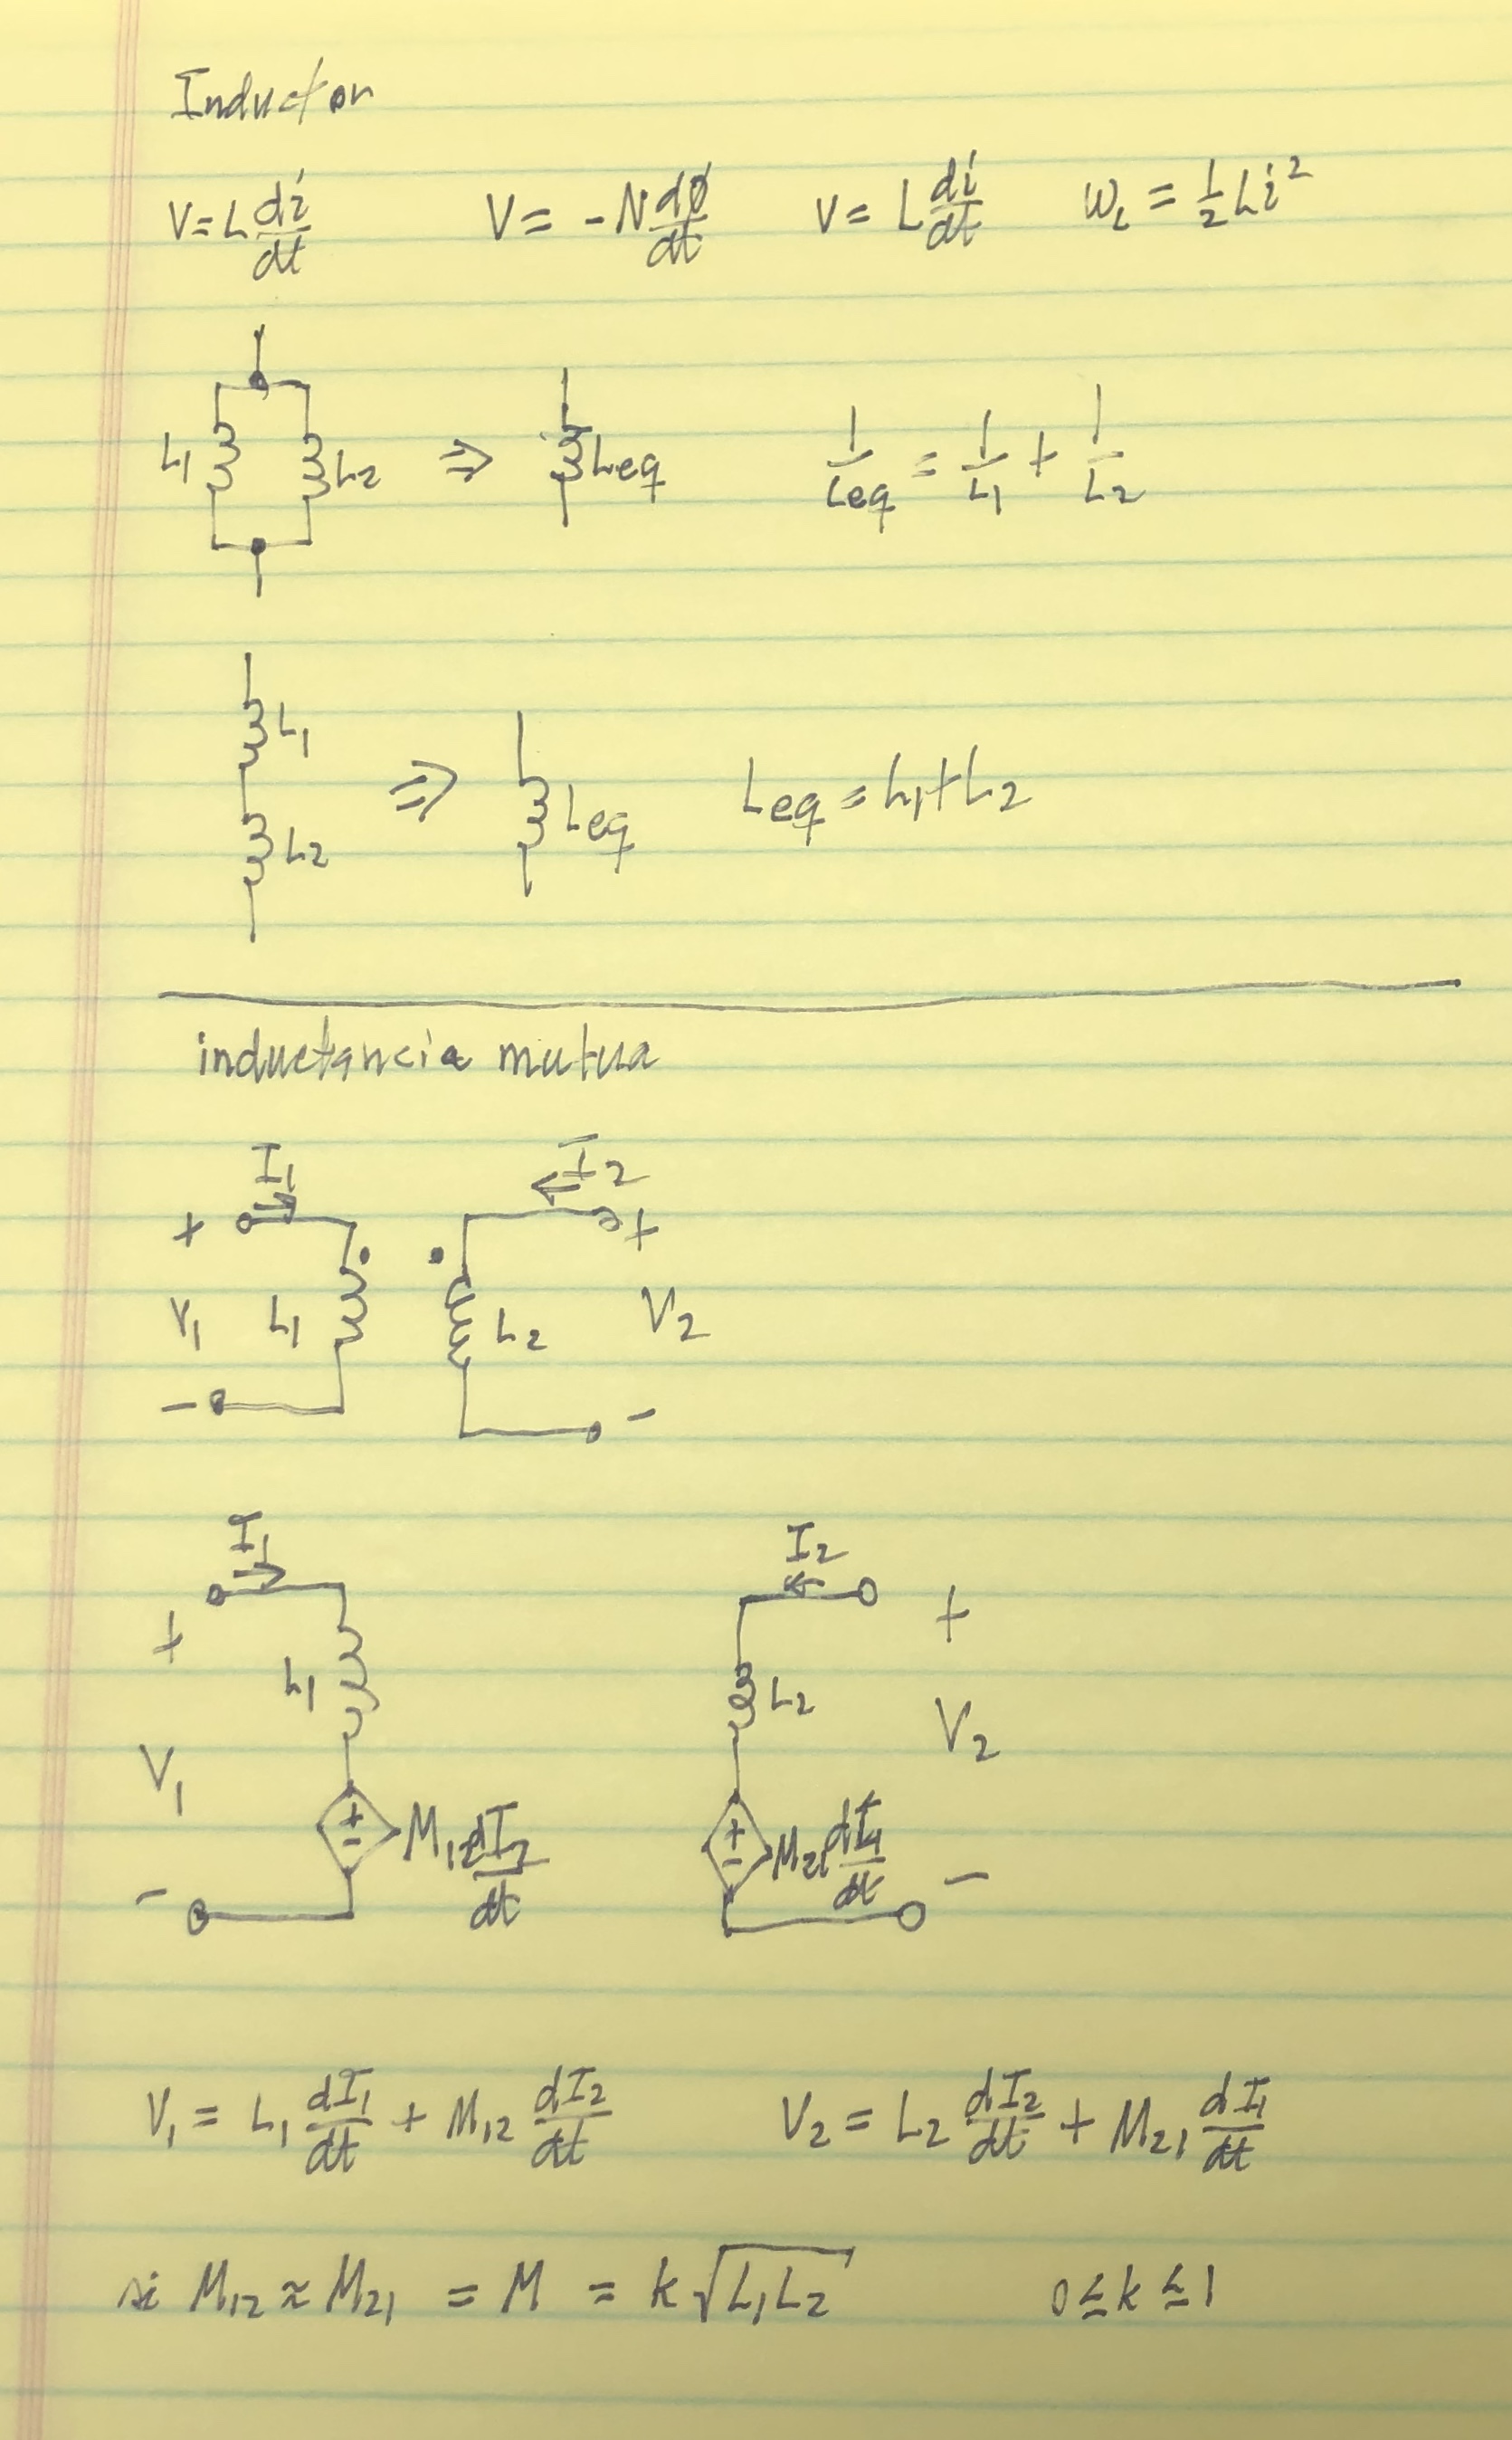 Inductor
V = L di/dt    V = -N dø/dt    V = L di/dt    W_L = 1/2 L i²
L₁ L₂ ⇒ Leq    1/Leq = 1/L₁ + 1/L₂
L₁
L₂ ⇒ Leq    Leq = L₁ + L₂
inductancia mutua
I₁ → ← I₂
+ +
V₁ L₁ L₂ V₂
- -
I₁ → I₂ ←
+ +
L₁ L₂
V₁ V₂
+ - M₁₂ dI₂/dt    + - M₂₁ dI₁/dt
- -
V₁ = L₁ dI₁/dt + M₁₂ dI₂/dt    V₂ = L₂ dI₂/dt + M₂₁ dI₁/dt
si M₁₂ ≈ M₂₁ = M = k√(L₁L₂)    0 ≤ k ≤ 1